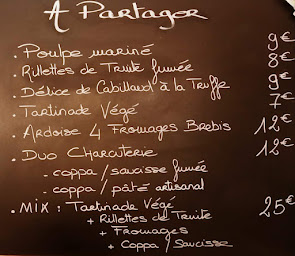 A Partager
. Poulpe mariné 9€
. Rillettes de Truite fumée 8€
. Délice de Cabillaud à la Truffe 9€
. Tartinade Végé 7€
. Ardoise 4 Fromages Brebis 12€
. Duo Charcuterie 12€
- coppa / saucisse fumée
- coppa / pâté artisanal
. MIX : Tartinade Végé 25€
+ Rillettes de Truite
+ Fromages
+ Coppa / Saucisse